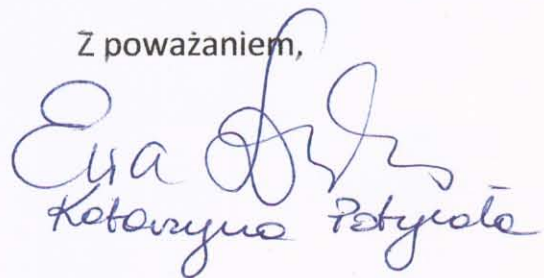 Z poważaniem,
Ewa
Katarzyna Potyrała